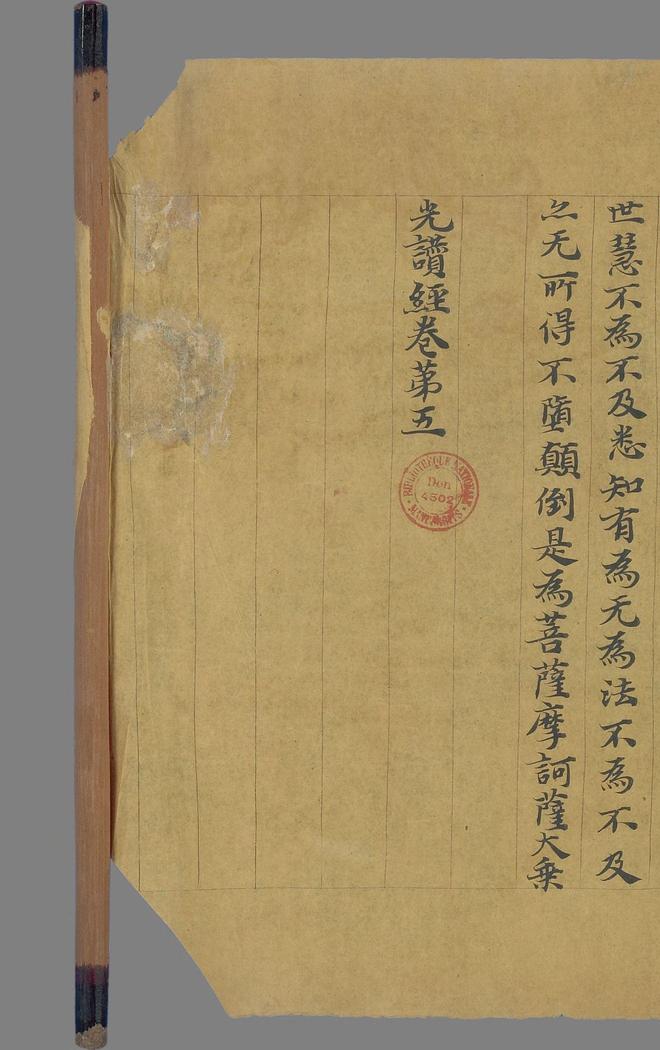 世慧不為不及悉知有為无為法不為不及
亦无所得不墮顛倒是為菩薩摩訶薩大乗
光讚經卷第五
BIBLIOTHEQUE NATIONALE
Don
4502
MANUSCRITS